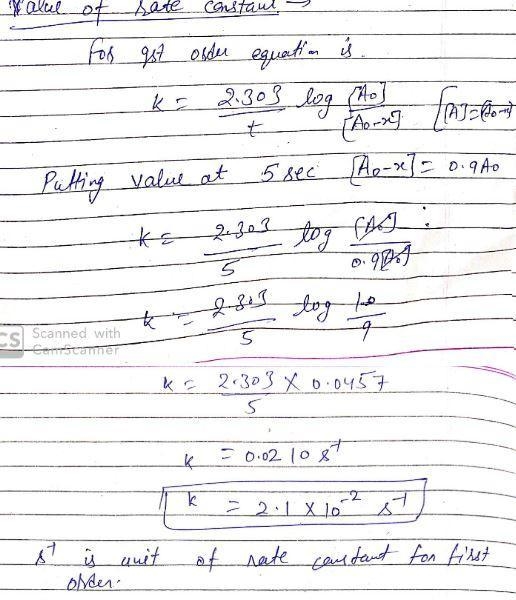 Value of rate constant →
for 1st order equation is.
k = 2.303/t log [A0]/[A0-x] [[A]=(A0-x)]
Putting value at 5 sec [A0-x] = 0.9A0
k = 2.303/5 log [A0]/0.9[A0]
k = 2.303/5 log 10/9
CS Scanned with
CamScanner
k = 2.303 × 0.0457/5
k = 0.0210 s⁻¹
k = 2.1 × 10⁻² s⁻¹
s⁻¹ is unit of rate constant for first
order.